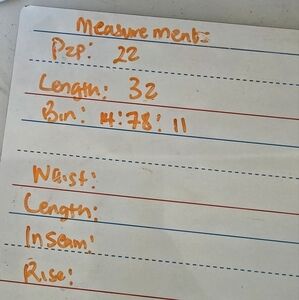 Measurement:
P2P: 22
Length: 32
Bin: 4:78:11
Waist:
Length:
Inseam:
Rise: